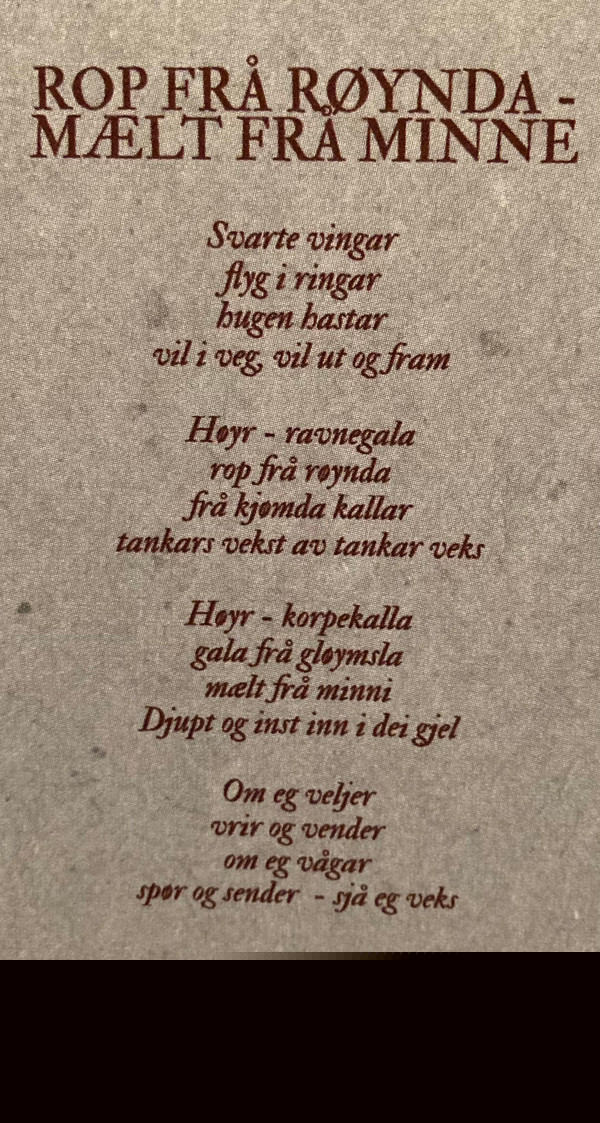 ROP FRÅ RØYNDA -
MÆLT FRÅ MINNE
Svarte vingar
flyg i ringar
hugen hastar
vil i veg, vil ut og fram
Høyr - ravnegala
rop frå røynda
frå kjømda kallar
tankars vekst av tankar veks
Høyr - korpekalla
gala frå gløymsla
mælt frå minni
Djupt og inst inn i dei gjel
Om eg veljer
vrir og vender
om eg vågar
spør og sender - sjå eg veks